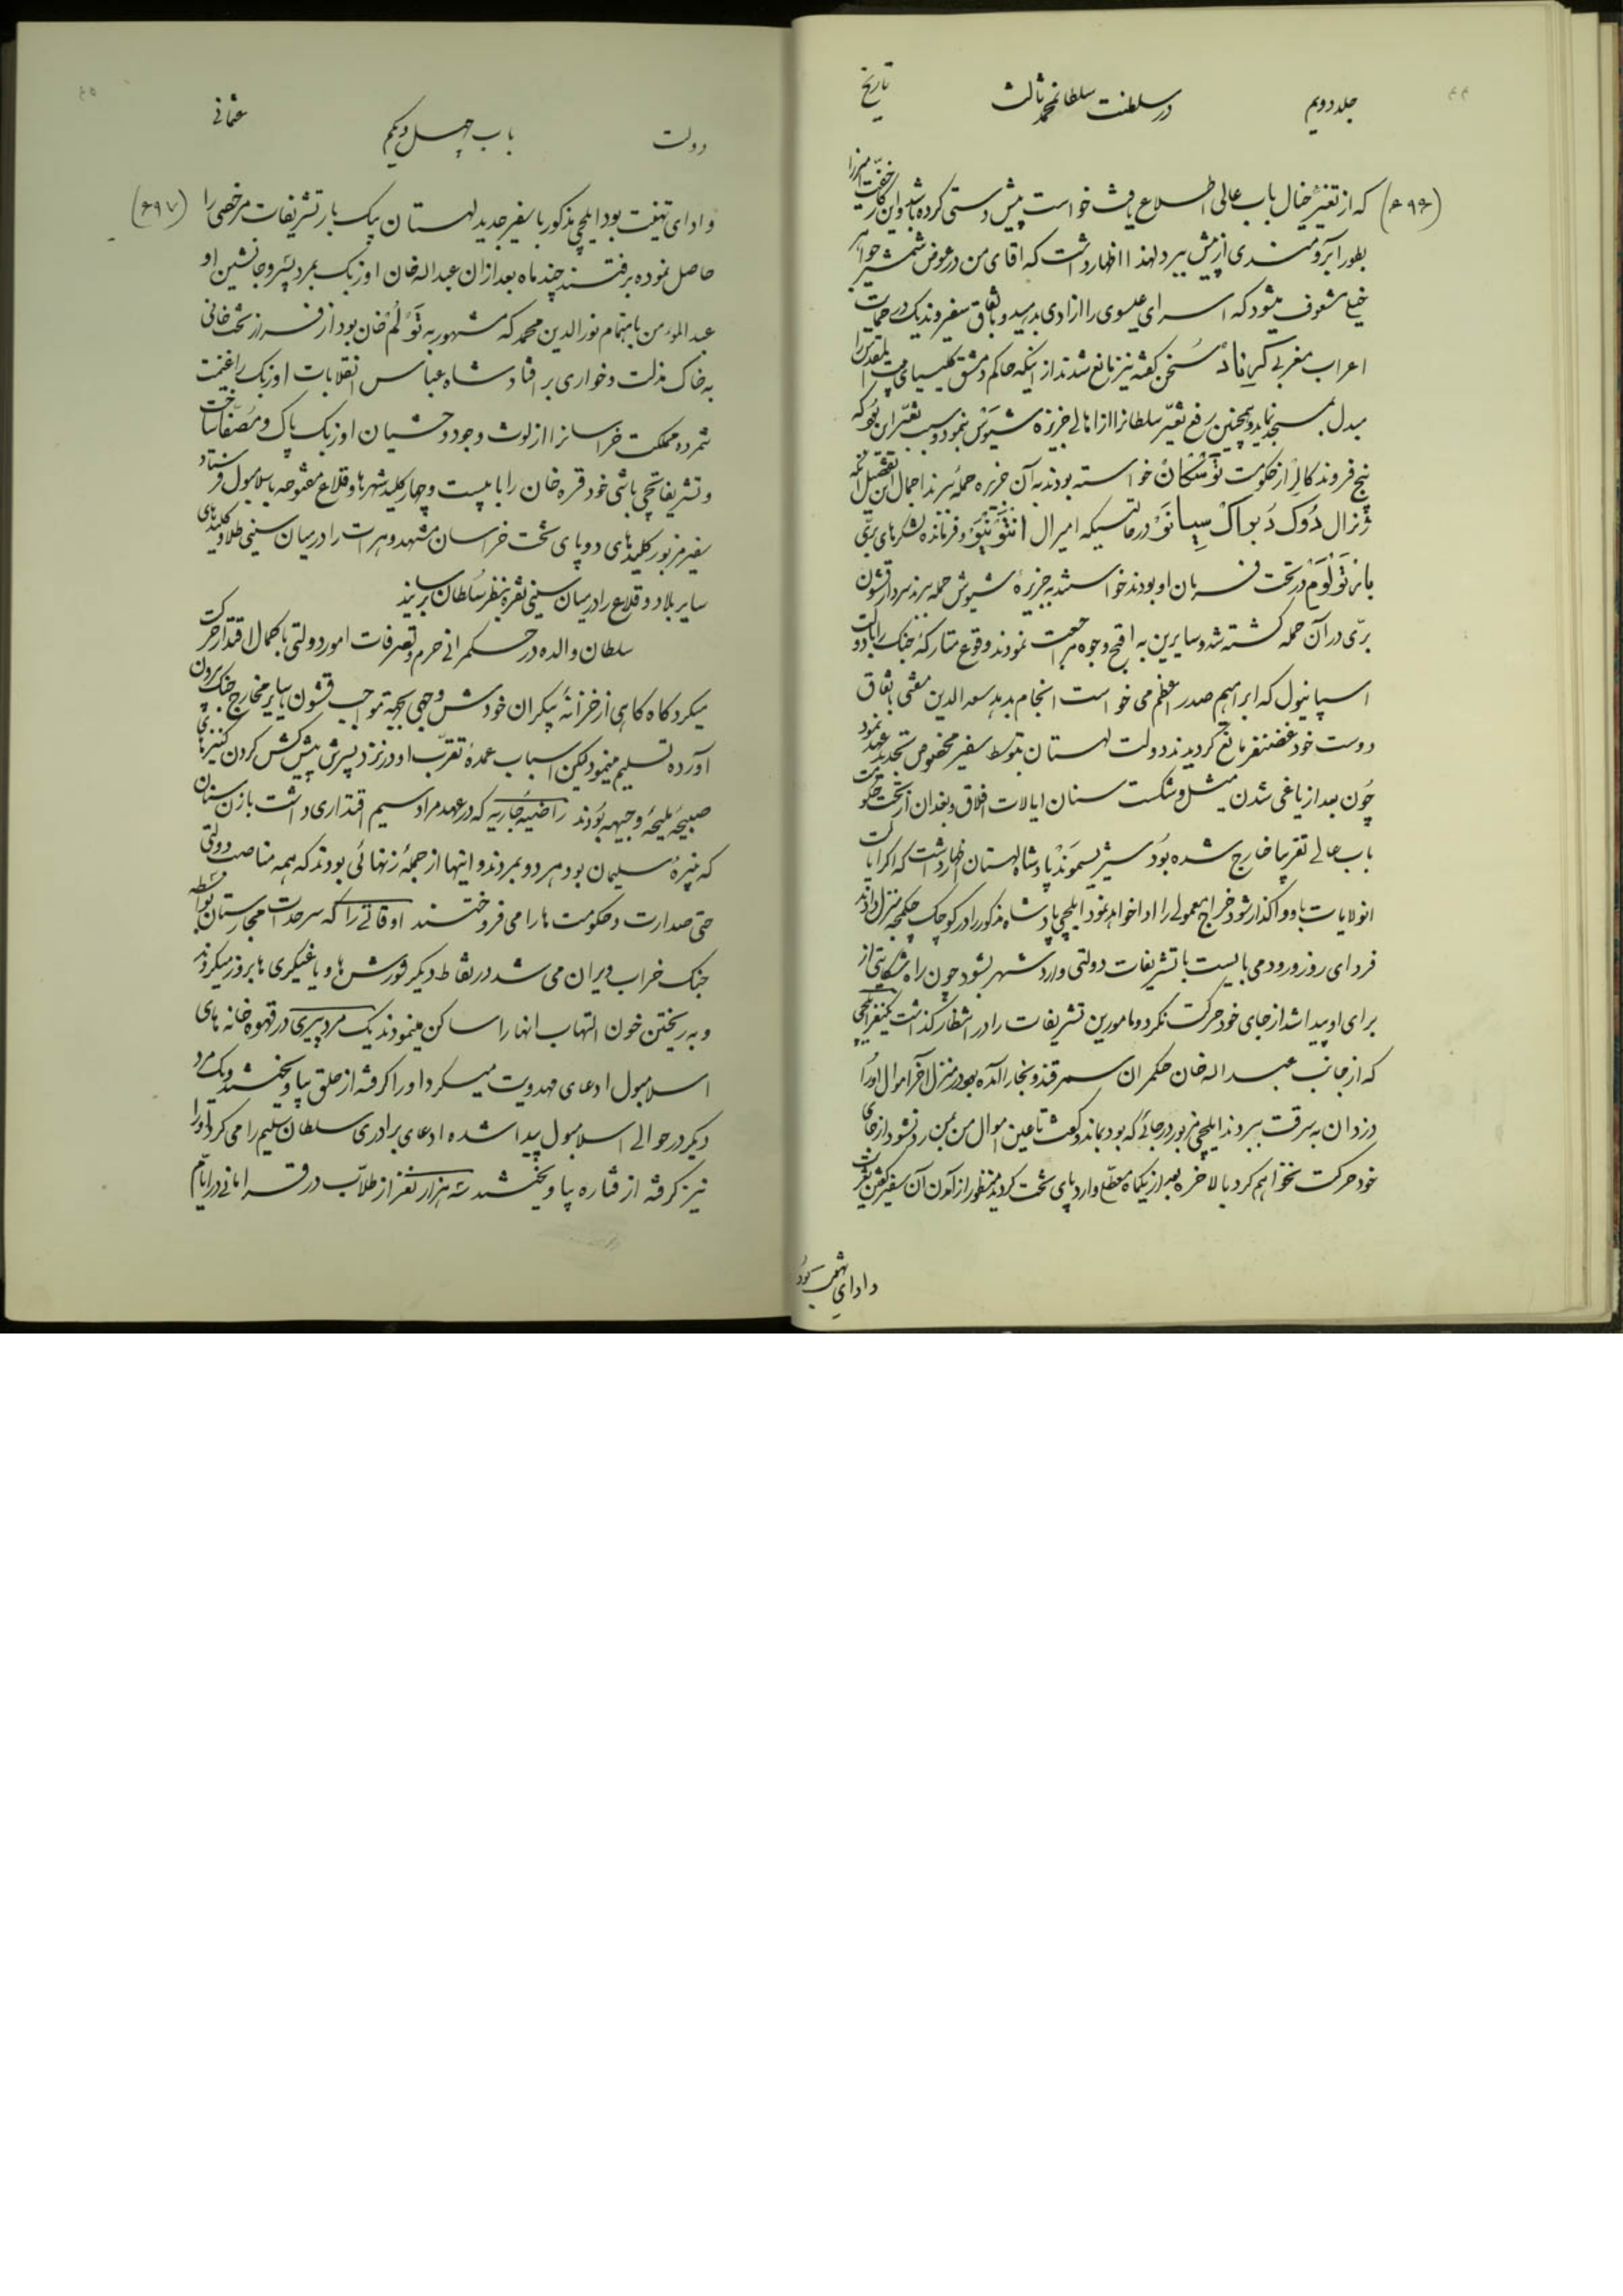 جلد دویم
در سلطنت سلطانمحمد ثالث
تاریخ
(۶۹۶) که از تغییر خیال باب عالی اطلاع یافت خواست پیش دستی کرده باشد و این کار خفت آمیز را
بطور آبرومندی از پیش ببرد لهذا اظهار داشت که اقای من در عوض شمشیر جواهر
خیلی مشعوف میشود که اسرای عیسوی را ازادی بدهید و باتفاق سفیر وندیک در حمایت
اعراب مغربی گرناد سخن گفته نیز مانع شدند از اینکه حاکم دمشق کلیسای بیت المقدس را
مبدل بمسجد نماید و همچنین رفع تغیّر سلطانرا از اهالی جزیزه شیوش نمود و سبب تغیّر این بود که
پنج فروند کالر از حکومت توسکان خواسته بودند به آن جزیره حمله ببرند اجمال این تفصیل آنکه
ژنرال دوک دُبواک سیانو در حالتیکه امیرال انتونیو و فرمانده لشکرهای برّی
بارتولوم در تحت فرمان او بودند خواستند به جزیرهٔ شیوش حمله ببرند سردار قشون
برّی در آن حمله کشته شد و سایرین به اقبح وجوه مراجعت نمودند وقوع متارکهٔ جنگ را با دولت
اسپانیول که ابراهیم صدر اعظم می خواست انجام بدهد سعدالدین مفتی باتفاق
دوست خود غضنفر مانع گردیدند دولت لهستان بتوسط سفیر مخصوص تجدید عهد نمود
چُون بعد از یاغی شدن میشل و شکست سنان ایالات افلاق و بغدان از تحت حکومت
باب عالی تقریبا خارج شده بُود سیژیسموند پادشاه لهستان اظهار داشت که اکر ایالت
انولایات باو واکذار شود خراج معمولی را ادا خواهد نمود ایلچی پادشاه مذکور را در کوچک چکمجه منزل دادند
فردای روز ورود می بایست با تشریفات دولتی وارد شهر بشود چون راه شکایتی از
برای او پیدا شد از جای خود حرکت نکرد و مامورین تشریفات را در انتظار گذاشت یکنفر ایلچی
که از جانب عبداله خان حکمران سمرقند و بخارا آمده بود در منزل آخر اموال او را
دزدان به سرقت ببردند ایلچی مزبور در جائی که بود بماند و کفت تا عین اموال من بمن رد نشود از جای
خود حرکت نخواهم کرد بالاخره بعد از یکماه معطلی وارد پای تخت کردید منظور از آمدن آن سفیر گفتن تعزیت
و ادای تهنیت بود
دولت
باب چهل و یکم
عثمانی
(۶۹۷) و ادای تهنیت بود ایلچی مذکور با سفیر جدید لهستان بیک بار تشریفات مرخصی را
حاصل نموده برفتند چند ماه بعد از ان عبداله خان اوزبک بمرد پسر و جانشین او
عبدالمؤمن باهتمام نورالدین محمد که مشهور به تَولُم خان بود از فراز تخت خانی
به خاک مذلت و خواری بر افتاد شاه عباس انقلابات اوزبک را غنیمت
شمرده مملکت خراسانرا از لوث وجود وحشیان اوزبک پاک و مصفّا ساخت
و تشریفاتچی باشی خود قره خان را با بیست و چهار کلید شهرها و قلاع مفتوحه باسلامبول فرستاد
سفیر مزبور کلیدهای دو پای تخت خراسان مشهد و هرات را در میان سینی طلا و کلیدهای
سایر بلاد و قلاع را در میان سینی نقره بنظر سلطان برسانید
سلطان والده در حکمرانی حرم و تصرفات امور دولتی باکمال اقتدار حرکت
میکرد گاه گاهی از خزانهٔ بیکران خودش وجهی بجهة مواجب قشون یا سایر مخارج جنک بیرون
آورده تسلیم مینمود لکن اسباب عمدهٔ تقرّب او در نزد پسرش پیش کش کردن کنیزهای
صبیحهٔ ملیحهٔ وجیهه بودند راضیه جاریه که در عهد مراد سیم اقتداری داشت با زن سنان
که نبیرهٔ سلیمان بود هر دو بمردند و اینها از جملهٔ زنهائی بودند که همه مناصب دولتی
حتی صدارت و حکومت ها را می فروختند اوقاتی را که سرحدات مجارستان بواسطه
جنک خراب و یران می شد در نقاط دیکر شورش ها و یاغیکری ها بروز میکردند
و به ریختن خون التهاب انها را ساکن مینمودند یک مرد پیری در قهوه خانه های
اسلامبول ادعای مهدویت میکرد او را کرفته از حلق بیاویختند و یک مرد
دیکر در حوالی اسلامبول پیدا شده ادعای برادری سلطان سلیم را می کرد او را
نیز کرفته از قناره بیاویختند سه هزار نفر از طلاب در قرامانی در ایّام